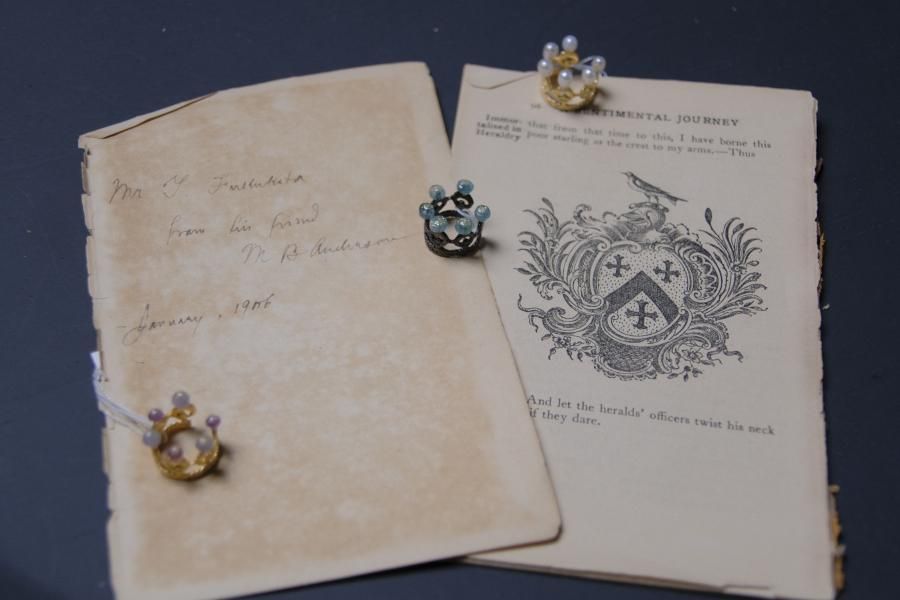 Mr
from his friend
M B Anderson
January, 1906
SENTIMENTAL JOURNEY
Immor-
talised in
Heraldry
that from that time to this, I have borne this
poor starling as the crest to my arms.—Thus
And let the heralds' officers twist his neck
if they dare.